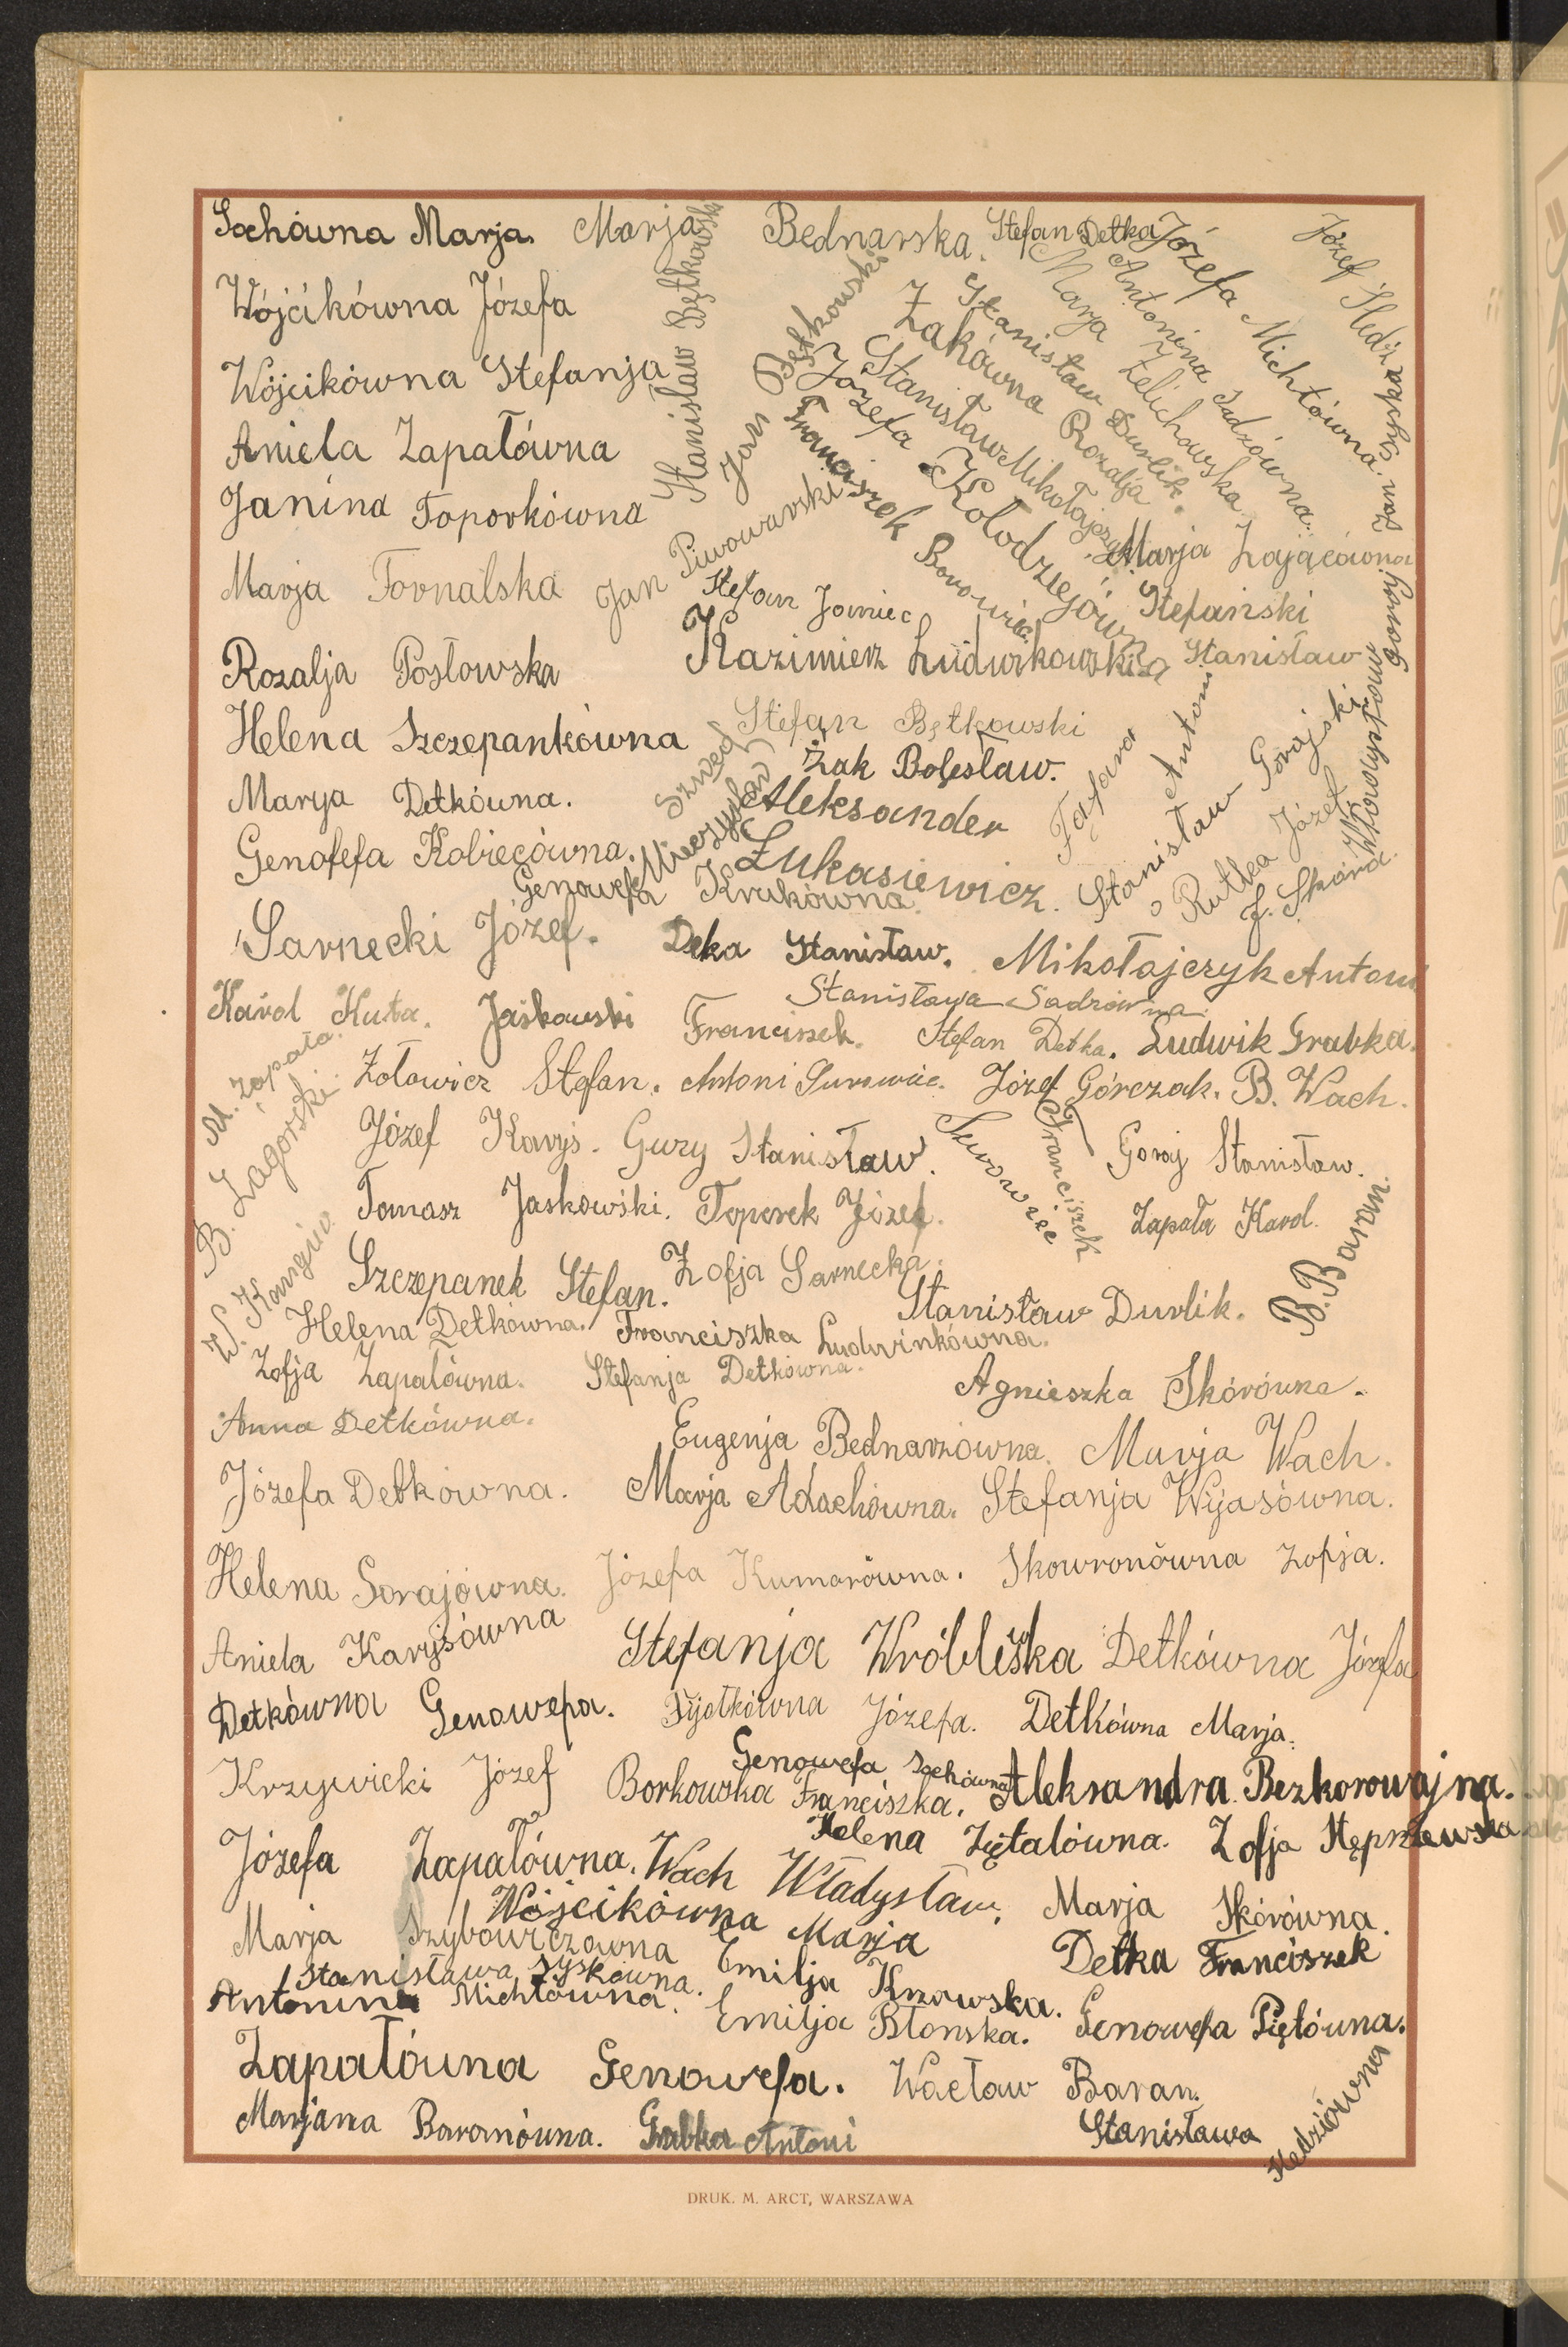 Sochówna Marja.
Marja Bednarska.
Stefan Detka
Józefa Michtówna.
Józef Śledź
Wójcikówna Józefa
Stanisław Bętkowski
Jan Bętkowski
Żakówna Rozalja
Stanisław Durlik.
Marja Zelichowska
Antonina Sadzówna.
Jan Syska
Wójcikówna Stefanja
Stanisław Mikołajczyk
Józefa Kołodziejówna
Franciszek Borowiec
Aniela Zapałówna
Janina Toporkówna
Jan Piwowarski
Marja Zającówna
Marja Fornalska
Stefan Jamiec
Stefański Stanisław
Kazimierz Ludwikowski
Rozalja Posłowska
Władysław Goraj
Helena Szczepankówna
Stefan Bętkowski
Żak Bolesław.
Szwed Mieczysław
Fafara Antoni
Stanisław Gorajski
Marya Detkówna.
Aleksander Łukasiewicz.
Rutka Józef
J. Skóra.
Genofefa Kobiecówna.
Genowefa Krukówna.
Sarnecki Józef.
Deka Stanisław.
Mikołajczyk Antoni
Stanisława Sadzówna.
Karol Kuta.
Jaśkowski Franciszek.
Stefan Detka.
Ludwik Grabka.
M. Zapała.
Żołowicz Stefan.
Antoni Surowiec.
Józef Górczak.
B. Wach.
B. Zagórski.
Józef Karyś.
Gury Stanisław.
Surowiec Franciszek
Goraj Stanisław.
Tomasz Jaskowski.
Toporek Józef.
Zapała Karol.
B. Baran.
Szczepanek Stefan.
Zofja Sarnecka.
Stanisław Durlik.
Helena Detkówna.
Franciszka Ludwinkówna.
Zofja Zapałówna.
Stefanja Detkówna.
Agnieszka Skórówna.
Anna Detkówna.
Eugenja Bednarzówna.
Marja Wach.
Józefa Detkówna.
Marja Adachówna.
Stefanja Wijasówna.
Helena Gorajówna.
Józefa Kumorówna.
Skowronówna Zofja.
Aniela Karysówna
Stefanja Wróblewska
Detkówna Józefa
Detkówna Genowefa.
Fijołkówna Józefa.
Detkówna Marja.
Krzywicki Józef
Borkowska Franciszka.
Genowefa Sochówna
Aleksandra Bezkorowajna.
Helena Ziętalówna.
Zofja Stępniewska
Józefa Zapałówna.
Wach Władysław.
Marja Skórówna.
Marja Szybowiczówna
Wójcikówna Marja
Detka Franciszek
Stanisława Syskówna.
Emilja Kzowska.
Antonina Michtówna.
Emilja Błonska.
Genowefa Piętówna.
Zapałówna Genowefa.
Wacław Baran.
Marjana Baranówna.
Grabka Antoni
Stanisława Kedziówna
DRUK. M. ARCT, WARSZAWA